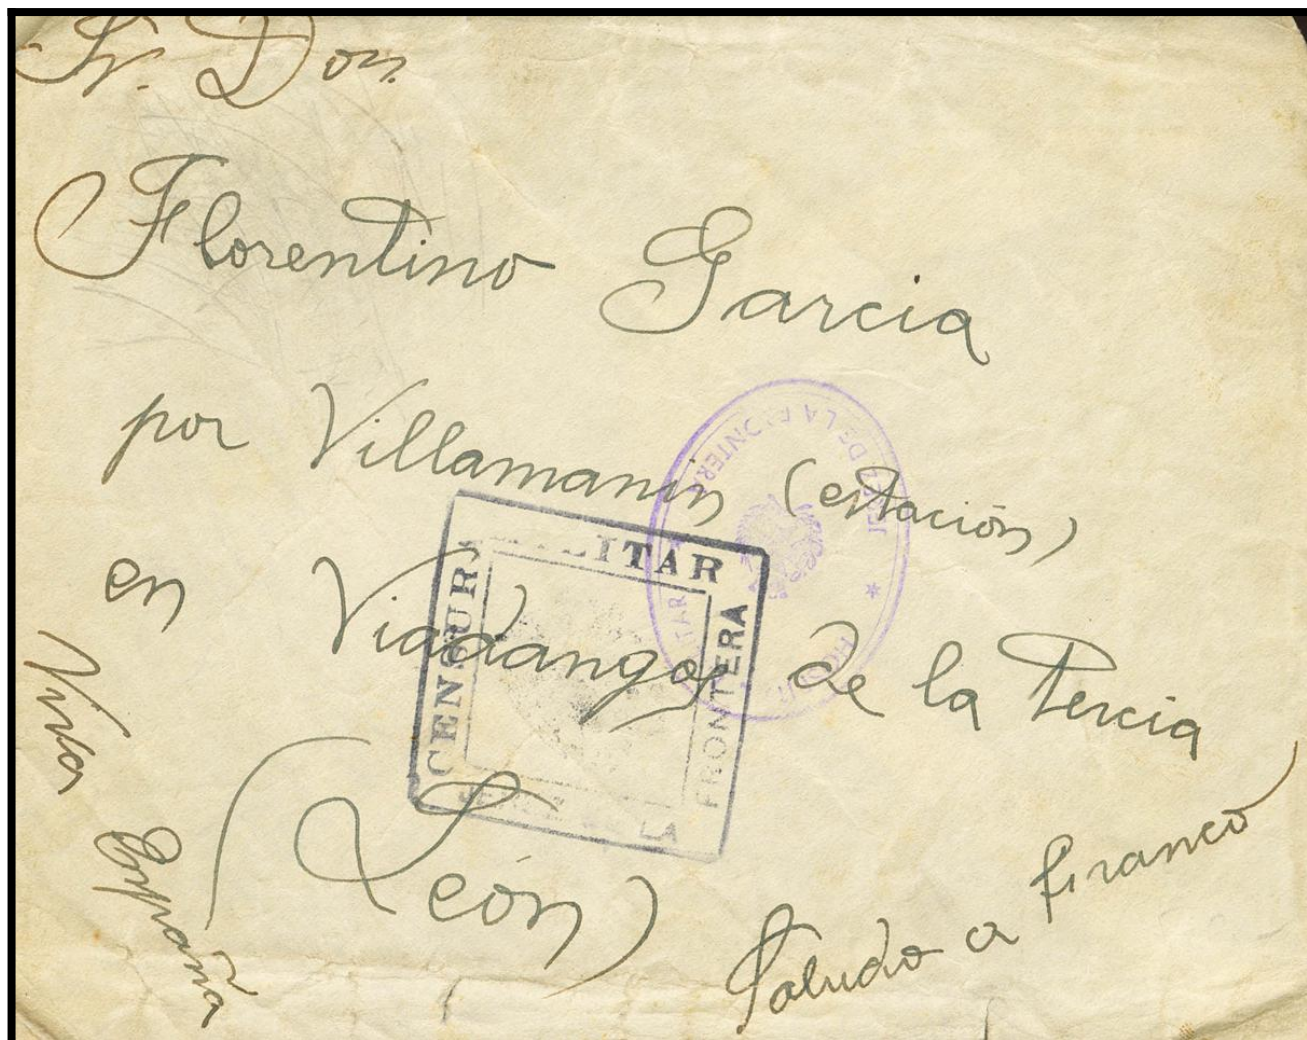 Sr. Don
Florentino Garcia
por Villamanin (estación)
en Viadangos de la Tercia
(León)
Viva España
Saludo a Franco
CENSURA MILITAR
FRONTERA
LA
DE LA FRONTERA